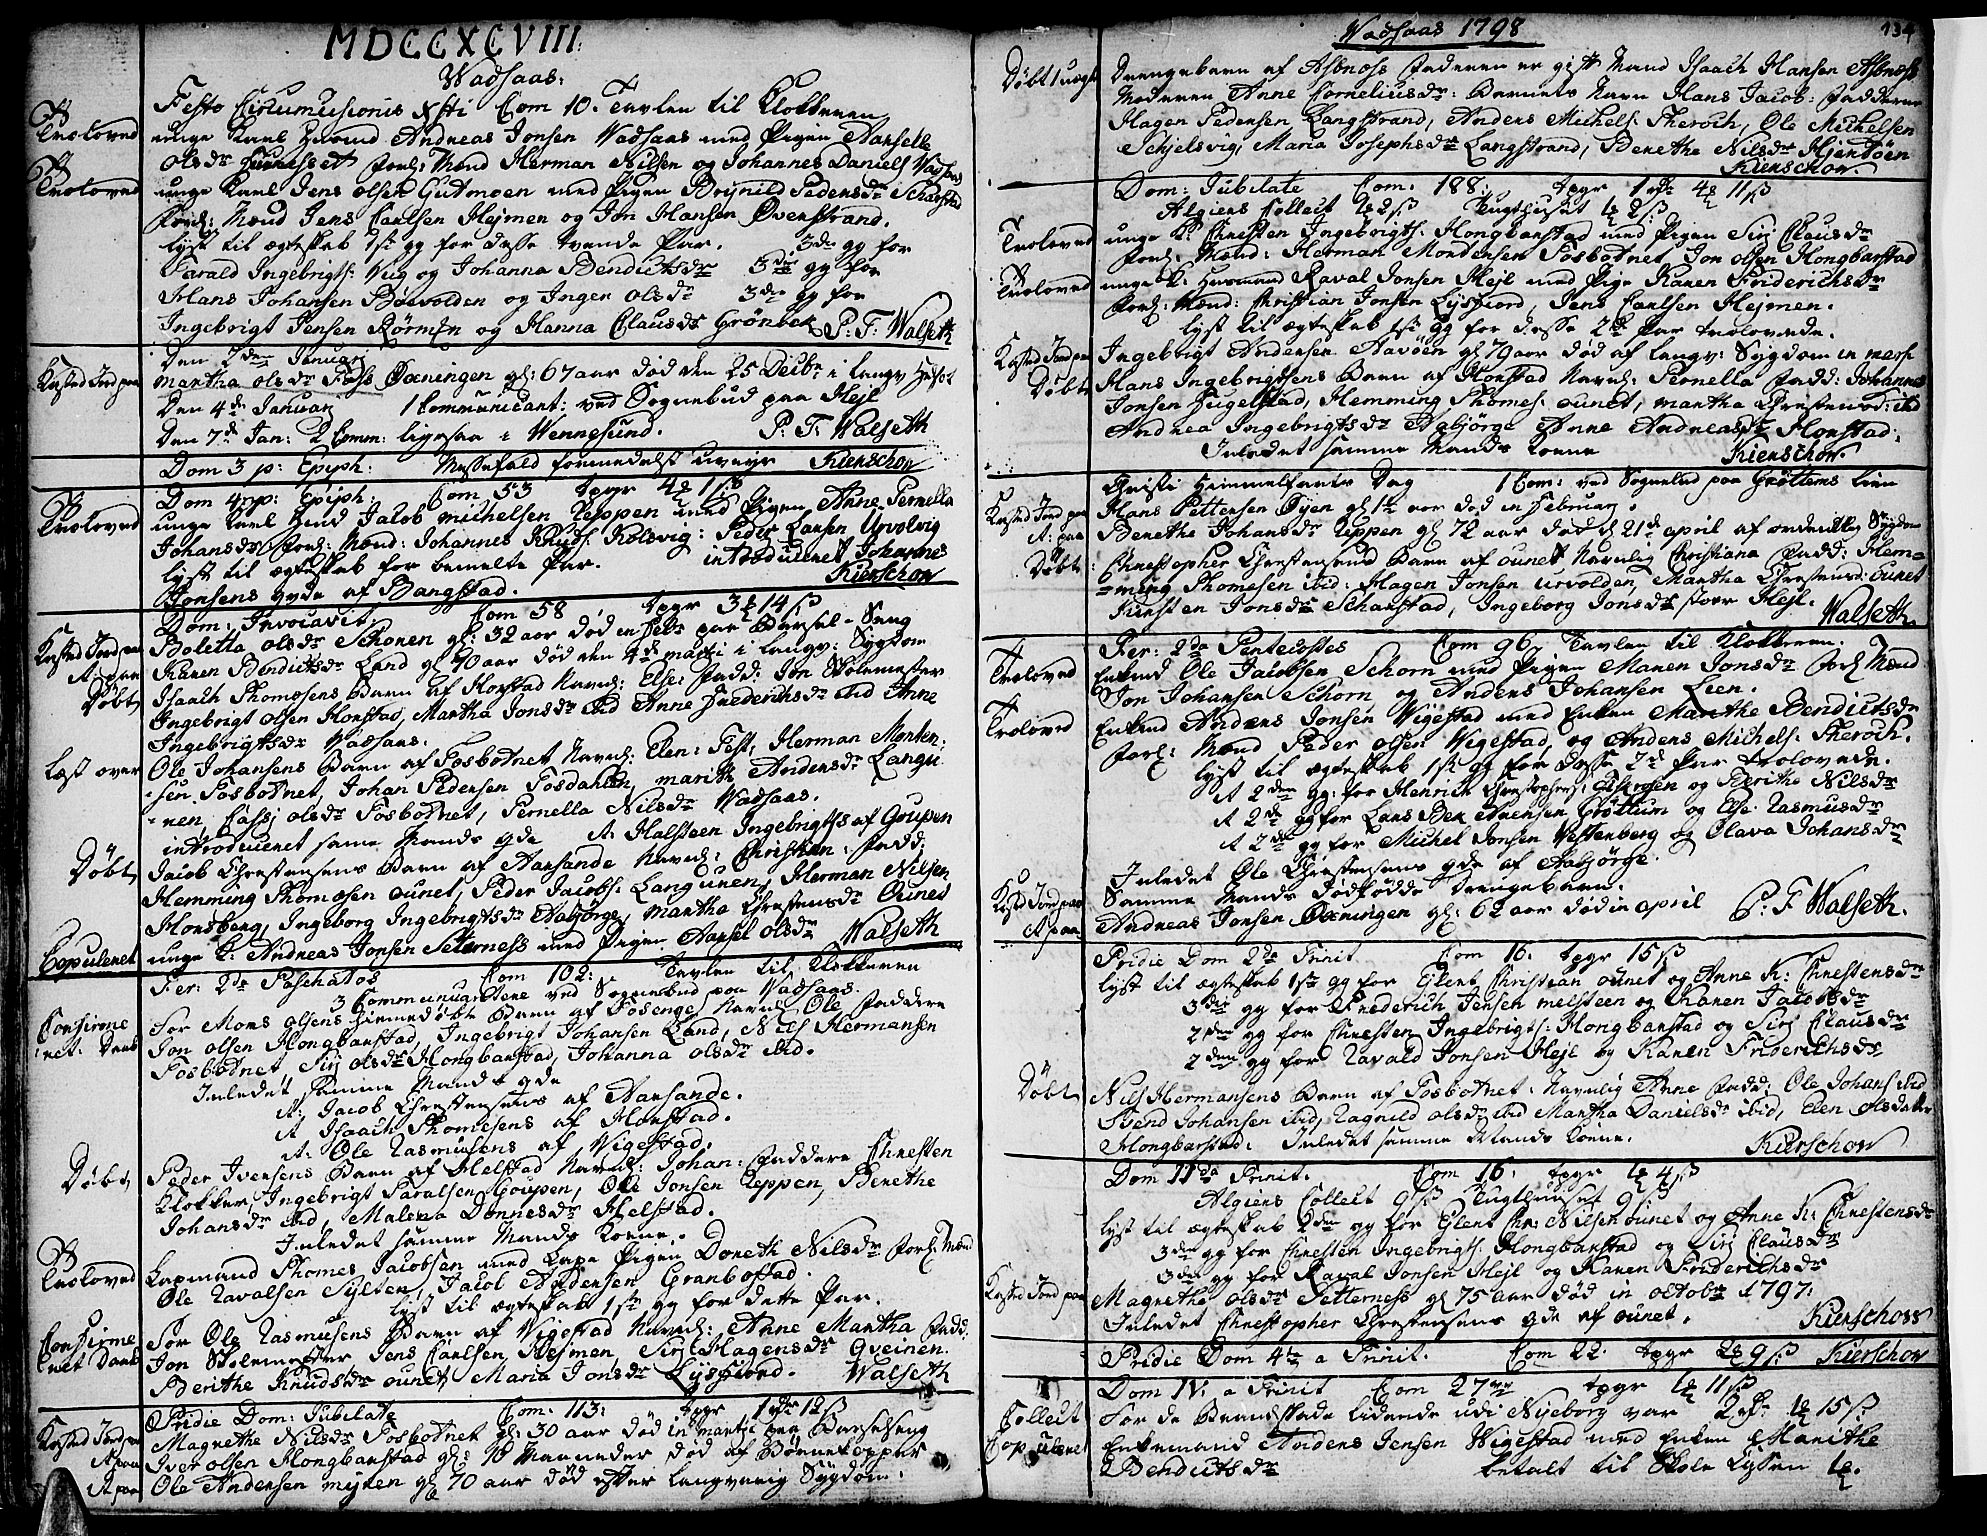 MDCCXCVIII:
Wadsaas:
Festo Circumcisionis Xsti Com 10. Tavlen til Klokkeren
Troloved unge Karl Husmd Andreas Jonsen Wadsaas med Pigen Aarselle
Olsdr Forl: Mænd Herman Nilsen og Johannes Daniels Wadsaas
Troloved unge Karl Jens olsen Gutmoen med Pigen Pedersdr Scharstad
Forl: Mænd Jens Carlsen Hejmen og Jon Hansen Øvenstrand.
lyst til ægteskab 1ste gg for disse tvende Par. 3die gg for
Harald Ingebrigts: Wiig og Johanna Bendictsdr 3die gg for
Hans Johansen Bøevolden og Inger olsdr 3die gg for
Ingebrigt Jensen Rørmen og Hanna Clausdr Grønbek P. F. Walseth
Den 7den Januari
Kasted Jord paa Martha olsdr Foss Oxningen gl: 67 aar død den 25 Decbr i langv
Den 4de Januari 1 Communicant: ved Sognebud paa Hejl
Den 7de Jan: 2 Comm: ligesaa i Wennesund. P. F. Walseth
Dom 3 p: Epiph: Messefald formedelst uvejr Kierschow
Dom 4 p: Epiph: Com 53
Troloved unge Karl Jacob Michelsen Reppen med Pigen Anne Pernella
Johansdr Forl: Mænd: Johannes Knuds: Kolsvig: Peder Larsen Urvolvig
lyst til ægteskab for bemelte Par. introduceret Johannes
Jonsens qvde af Bangstad. Kierschow
Dom: Invocavit. Com 58
Kasted Jord paa Boletta olsdr Schonen gl: 32 aar død paa Barsel-Seng
It: paa Karen Bendictsdr Land gl 70 aar død den 4de Martii i langv: Sygdom
Døbt Isaach Thomesens Barn af Horstad Navnl: Else: Fadd: Jon Skolemester
Ingebrigt olsen Horstad, Martha Jonsdr ibid Anne Frederichsdr ibid Anne
Ingebrigtsdr Wadsaas.
Læst over Ole Johansens Barn af Fosbotnet Navnl: Elen: Test, Herman Morten-
-sen Fosbotnet, Johan Pedersen Fosdahlen, Marith Andersdr Langu-
-nen, olsdr Fosbotnet, Pernella Nilsdr Wadsaas.
introduceret samme Mands qde It: Halsteen Ingebrigts af Goupen
Døbt Jacob Chrestensens Barn af Aarsande Navnl: Christian: Fadd:
Hemming Thomesen ounet, Peder Jacobs: Langunen, Herman Nilsen
Horsberg, Ingeborg Ingebrigtsdr Aabjørge, Martha Chrestensdr Ounet
Copuleret unge K: Andreas Jonsen Seterness med Pigen Aarsel olsdr Walseth
Fer: 2da Paschatos Com 102: Tavlen til Klokkeren
3 Communicantere ved Sognebud paa Wadsaas.
Confirmeret: Daab For Mons olsens hiemedøbt Barn af Fosenge Navnl Ole Faddere
Jon olsen Hongbarstad, Ingebrigt Johansen Land, Nils Hermansen
Fosbotnet, Siri olsdr Hongbarstad, Johanna olsdr ibid.
Inledet samme Mands qde
It: Jacob Chrestensens af Aarsande.
It Isaach Thomesens af Horstad.
It: Ole Rasmusens af Wigestad.
Døbt Peder Iversens Barn af Helstad Navnl: Johan: Faddere Chresten
Klokker, Ingebrigt Haralsen Goupen, Ole Jonsen Reppen, Berethe
Johansdr ibid, Malena Dønnesdr Helstad.
Inledet samme Mands Kone.
Troloved Lapmand Thomes Jacobsen med Lape Pigen Dorethe Nilsdr Forl: Mænd
Ole Ravalsen Sylten, Jacob Andersen Granbostad.
lyst til ægteskab 1ste gg for dette Par.
Confirmeret Daab For Ole Rasmusens Barn af Wigestad Navnl: Anne Martha Fadd:
Jon Skolemester Jens Carlsen Hejmen Siri Hagensdr Gveinen.
Berithe Knudsdr ounet, Maria Jonsdr Lysfjord. Walseth
Pridie Dom: Jubilate Com. 113:
Kasted Jord paa Magrethe Nilsdr Fosbotnet gl: 30 aar død in martii paa Barselseng
It paa Iver olsen Hongbarstad gl: 10 Maaneder død af Børnekopper
It paa Ole Andersen Myren gl 70 aar død efter langvarig Sygdom.
Wadsaas 1798
134
Døbt Drengebarn af Asbnøss Faderen er gift Mand Isaach Hansen Asbnøss
Moderen Anne Corneliusdr: Barnets Navn Hans Jacob: Faddere
Hagen Pedersen Langstrand, Anders Michels: Therøch, Ole Michelsen
Schjelsvig, Maria Josephsdr Langstrand, Berethe Nilsdr Hjertøen
Kierschow.
Dom: Jubilate Com. 188.
Algiers Collect Tugthuset
Troloved unge K: Chresten Ingebrigts: Hongbarstad med Pigen Siri Clausdr
Forl: Mænd: Herman Mortensen Fosbotnet, Jon olsen Hongbarstad
Troloved unge K: Husmand Raval Jonsen Hejl med Pige Karen Friderichsdr
Forl: Mænd: Christian Jonsen Lysfjord, Jens Carlsen Hejmen.
lyst til ægteskab 1ste gg for disse 2de Par trolovede.
Kasted Jord paa Ingebrigt Andersen Aavøen gl 79 aar død af langv: Sygdom
Døbt Hans Ingebrigtsens Barn af Horstad Navnl: Pernella Fadd: Johannes
Jonsen Fugelstad, Hemming Thomes: ounet, Martha Chrestensd: ibid
Andrea Ingebrigtsdr Aabjørge Anne Andreasdr Horstad:
Inledet samme Mands Kone Kierschow.
Christi Himmelfarts Dag 1 Com: ved Sognebud paa Grøttems lien
Kasted Jord paa Hans Pettersen Øyen gl 1½ aar død in Februarj.
It: paa Berethe Johansdr Reppen gl 72 aar død d 21de april af ordentlig Sygdom
Døbt: Chrestopher Chrestensens Barn af ounet Navnlig Christiana Fadd: Hem-
-ming Thomesen ibid: Hagen Jonsen urvolden, Martha Chrestensd: Ounet
Kiersten Jonsdr Scharstad, Ingeborg Jonsdr stoer Hejl. Walseth
Fer: 2da Pentecostes Com 96. Tavlen til Klokkeren.
Troloved Enkemd Ole Jacobsen Schorn med Pigen Maren Jonsdr Forl: Mænd
Jon Johansen Schorn, og Anders Johansen Leen.
Troloved Enkemd Anders Jonsen Wigestad med Enken Marithe Bendictsdr
Forl: Mænd Peder olsen Wigestad, og Anders Michels: Therøch.
lyst til ægteskab 1ste gg for disse 2de Par trolovede.
It 2den gg: for Henrich Chrestophers: og Berithe Nilsdr
It 2de gg for Lars Grøttum og Else Rasmusdr
It 2de gg for Michel Jonsen Vestenberg og Olava Johansdr
Inledet Ole Chrestensens qde af Aabjørge.
Kasted Jord paa Samme Mands dødfødde Drengebarn.
It paa Andreas Jonsen Oxningen gl: 62 aar død in april P. F. Walseth.
Pridie Dom 2da Trinit Com 16.
lyst til ægteskab 1ste gg for Glent Christian ounet og Anne K: Chrestensdr
3die gg for Frederich Jensen Melsteen og Karen Jacobsdr
2den gg for Chresten Ingebrigts: Hongbarstad og Siri Clausdr
2den gg for Ravald Jonsen Hejl og Karen Friderichsdr
Døbt Nils Hermansens Barn af Fosbotnet: Navnlig Anne Fadd: Ole Johans ibid
Svend Johansen ibid, Ragnild olsdr ibid Martha Danielsdr ibid, Elen olsdatter
Hongbarstad: Inledet samme Mands Kone. Kierschow
Dom 11da Trinit. Com 16.
Algiers Collect Tugthuuset
lyst til ægteskab 2den gg for Glent Chr: Nilsen ounet og Anne K: Chrestensdr
3die gg for Chresten Ingebrigts: Hongbarstad og Siri Clausdr
3die gg for Raval Jonsen Hejl og Karen Friderichsdr
Kasted Jord paa Magrethe olsdr Setterness gl 75 aar død in octobr 1797:
Inledet Chrestopher Chrestensens qde af ounet. Kierschow
Pridie Dom 4ta a Trinit. Com 22. Kierschow
Dom IV. a Trinit Com 27
Collect For de Brandskade lidende udi Nyeborg var
Copuleret Enkemand Anders Jensen Wigestad med Enken Marithe
Bendictsdr betalt til Skole Cassen